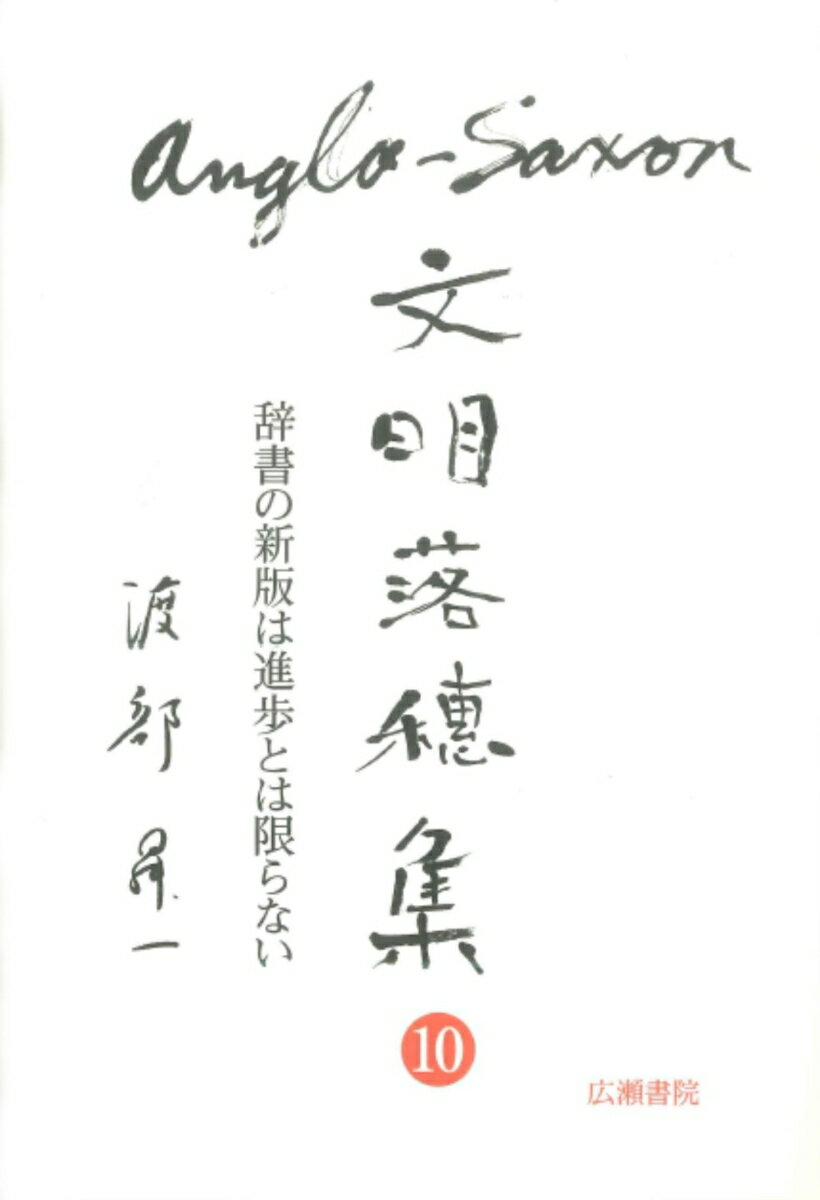 Anglo-Saxon
文明落穗集
辞書の新版は進歩とは限らない
渡部昇一
10
広瀬書院